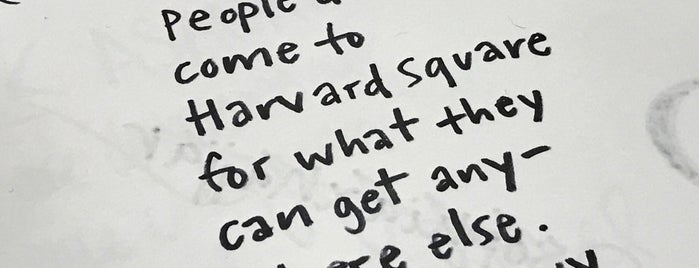 people
come to
Harvard Square
for what they
can get any-
else.